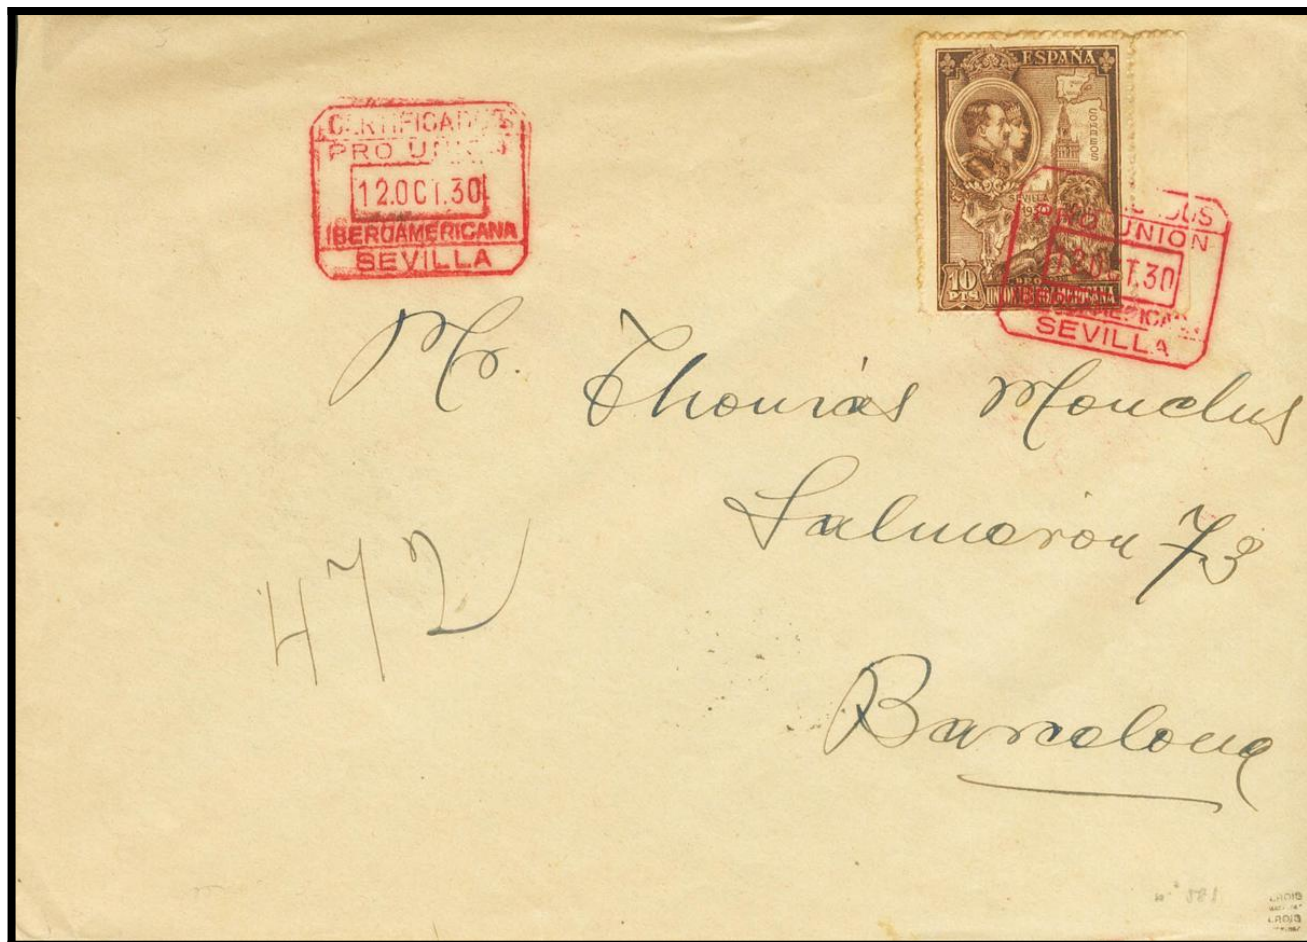 CERTIFICADOS
PRO UNION
12.OCT.30
IBEROAMERICANA
SEVILLA
ESPAÑA
CORREOS
SEVILLA
10
PTS
PRO UNION
12 OCT.30
SEVILLA
Mr. Thomás Monclus
Salmerón 73
472
Barcelona